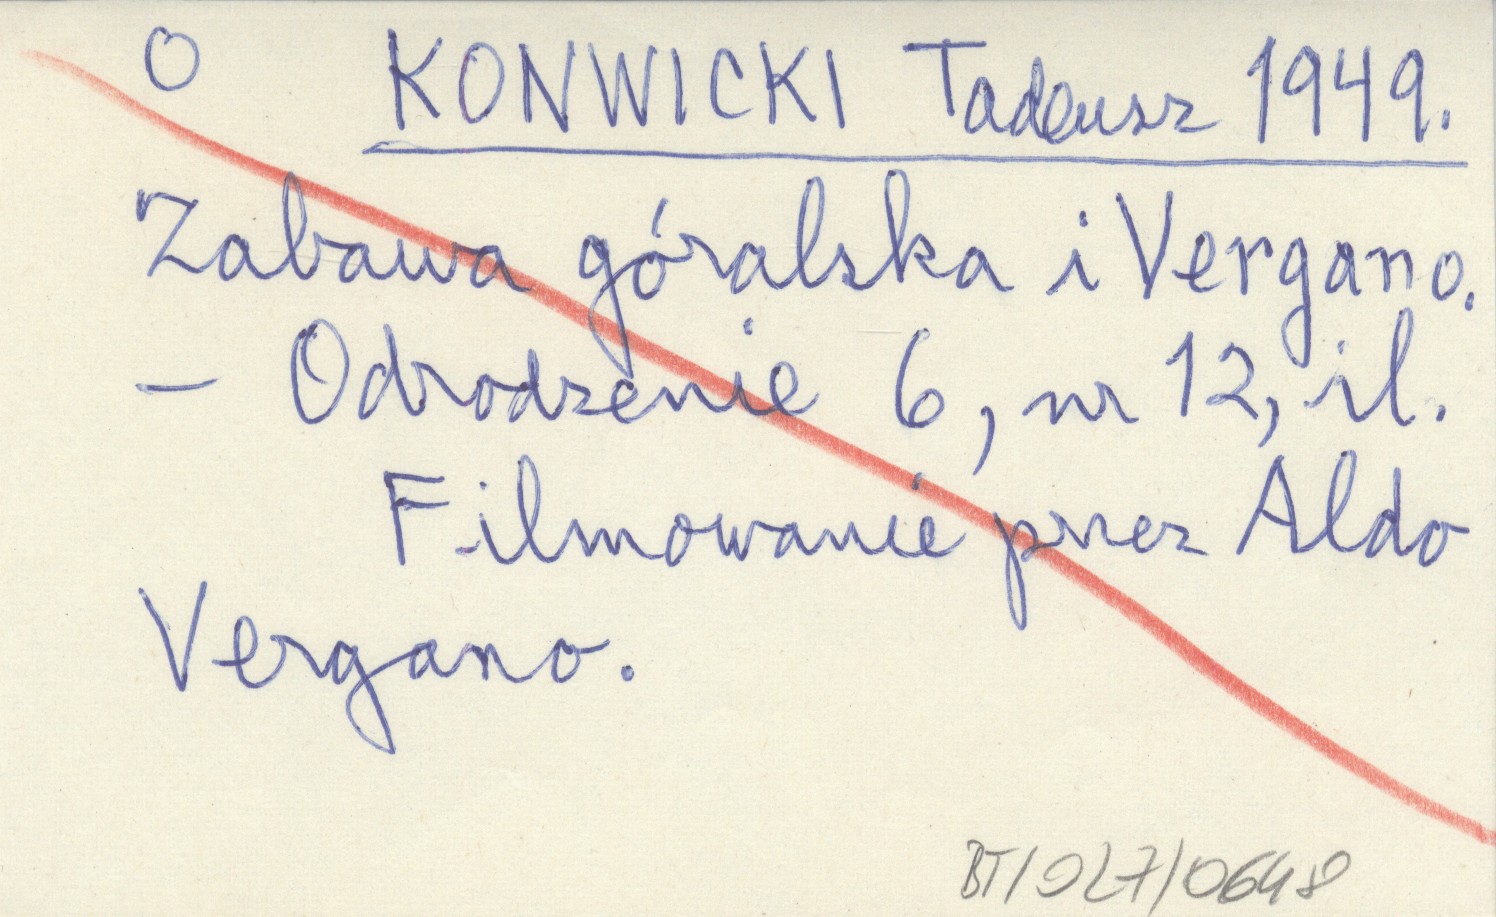 O KONWICKI Tadeusz 1949.
Zabawa góralska i Vergano.
– Odrodzenie 6, nr 12, il.
Filmowanie przez Aldo
Vergano.
BT/027/0648